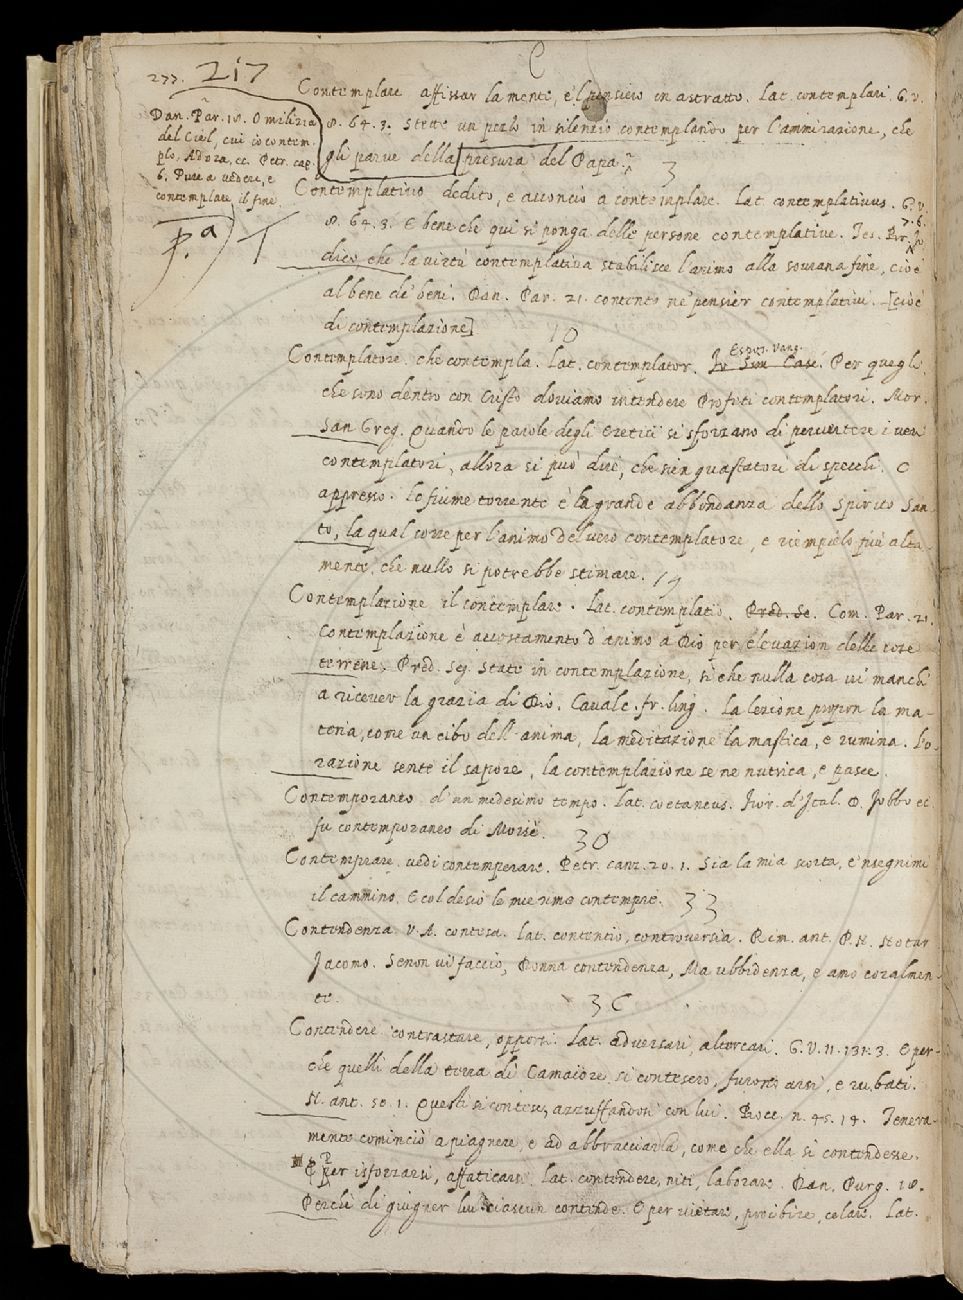 C
277. 217
Contemplare affissar la mente, e 'l pensiero in astratto. Lat. contemplari. G. V.
8. 64. 3. Stette un pezzo in silenzio contemplando per l'ammirazione, che
gli parve della presura del Papa.
3
Dan. Par. 18. O milizia
del Ciel, cui io contem-
plo, Adora, ec. Petr. cap.
6. Pure a vedere, e
contemplare il fine
p.a T
Contemplativo dedito, e acconcio a contemplare. Lat. contemplativus. G. V.
8. 64. 3. E bene che qui si ponga delle persone contemplative. Tes. Br. 7. 6.
dico che la virtù contemplativa stabilisce l'animo alla sovrana fine, cioè
al bene de' beni. Dan. Par. 21. contento ne' pensier contemplativi. [cioè
di contemplazione]
10
Contemplatore. che contempla. Lat. contemplator. Espos. Vang. Per quegli,
che sono dentro con Cristo doviamo intendere Profeti contemplatori. Mor.
San Greg. Quando le parole degli Eretici si sforzano di pervertere i veri
contemplatori, allora si può dire, che sien guastatori di specchi. E
appresso. Lo fiume torrente è la grande abbondanza dello Spirito San-
to, la qual corre per l'animo del vero contemplatore, e riempielo più alta-
mente, che nullo si potrebbe stimare.
19
Contemplazione il contemplare. Lat. contemplatio. Pred. Com. Par. 21.
Contemplazione è accostamento d'animo a Dio per elevazion delle cose
terrene. Pred. Seg. State in contemplazione, sì che nulla cosa vi manchi
a ricever la grazia di Dio. Cavalc. fr. ling. La lezione la ma-
teria, come un cibo dell'anima, la meditazione la mastica, e rumina. L'o-
razione sente il sapore, la contemplazione se ne nutrica, e pasce.
Contemporaneo d'un medesimo tempo. Lat. coetaneus. Fior. d'Ital. D. Jobbo
fu contemporaneo di Moisè.
30
Contemprare. vedi contemperare. Petr. canz. 20. 1. Sia la mia scorta, e 'nsegnimi
il cammino, E col desio le mie rime contempre.
33
Contendenza. V. A. contesa. Lat. contentio, controversia. Rim. ant. P. N. Notar
Jacomo. Se non vi faccio, Donna contendenza, Ma ubbidenza, e amo coralmen-
te.
36
Contendere contrastare, opporsi. Lat. adversari, altercari. G. V. 11. 131. 3. E per-
chè quelli della terra di Camaiore si contesero, furono arsi, e rubati.
N. ant. 50. 1. Questi si contese, azzuffandosi con lui. Bocc. n. 45. 14. Tenera-
mente cominciò a piagnere, e ad abbracciarla, come che ella si contendesse.
E per isforzarsi, affaticarsi. Lat. contendere, niti, laborare. Dan. Purg. 18.
Perchè di giugner lui ciascun contende. E per vietare, proibire, celare. Lat.